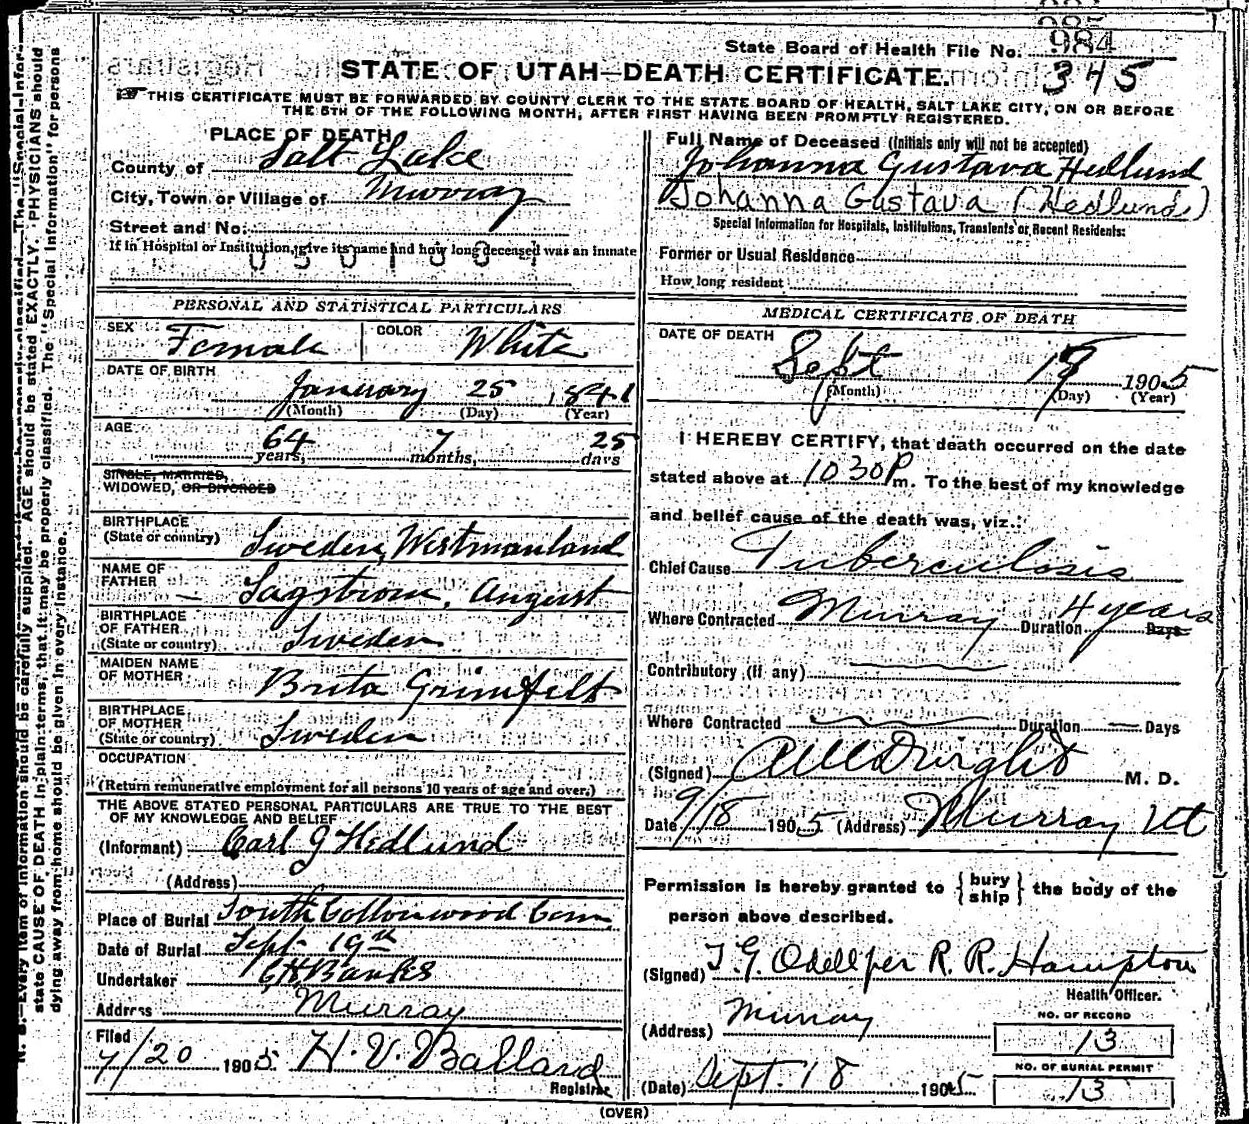 984
State Board of Health File No. 345
STATE OF UTAH—DEATH CERTIFICATE.
THIS CERTIFICATE MUST BE FORWARDED BY COUNTY CLERK TO THE STATE BOARD OF HEALTH, SALT LAKE CITY, ON OR BEFORE
THE 5TH OF THE FOLLOWING MONTH, AFTER FIRST HAVING BEEN PROMPTLY REGISTERED.
PLACE OF DEATH
County of Salt Lake
City, Town or Village of Murray
Street and No.
If in Hospital or Institution, give its name and how long deceased was an inmate
PERSONAL AND STATISTICAL PARTICULARS
SEX Female COLOR White
DATE OF BIRTH
January 25 1841
(Month) (Day) (Year)
AGE
64 years, 7 months, 25 days
SINGLE, MARRIED,
WIDOWED, OR DIVORCED
BIRTHPLACE
(State or country) Sweden, Westmanland
NAME OF
FATHER Sagstrom, August
BIRTHPLACE
OF FATHER
(State or country) Sweden
MAIDEN NAME
OF MOTHER Brita Grimfelt
BIRTHPLACE
OF MOTHER
(State or country) Sweden
OCCUPATION
(Return remunerative employment for all persons 10 years of age and over.)
THE ABOVE STATED PERSONAL PARTICULARS ARE TRUE TO THE BEST
OF MY KNOWLEDGE AND BELIEF
(Informant) Carl J Hedlund
(Address)
Place of Burial South Cottonwood Cem
Date of Burial Sept. 19th
Undertaker Banks
Address Murray
Filed
9/20 1905. H. V. Ballard
Registrar
Full Name of Deceased (Initials only will not be accepted)
Johanna Gustava Hedlund
Johanna Gustava (Hedlunds)
Special Information for Hospitals, Institutions, Transients or Recent Residents:
Former or Usual Residence
How long resident
MEDICAL CERTIFICATE OF DEATH
DATE OF DEATH
Sept 18 1905
(Month) (Day) (Year)
I HEREBY CERTIFY, that death occurred on the date
stated above at 10 30 P m. To the best of my knowledge
and belief cause of the death was, viz.:
Chief Cause Tuberculosis
Where Contracted Murray Duration 4 years Days
Contributory (if any)
Where Contracted Duration Days
(Signed) Wright M. D.
Date 9/18 1905 (Address) Murray Ut
Permission is hereby granted to {bury
ship} the body of the
person above described.
(Signed) T. G. Odell per R. R. Hampton
Health Officer.
(Address) Murray
NO. OF RECORD
13
(Date) Sept. 18 1905
NO. OF BURIAL PERMIT
13
(OVER)
N. B.—Every item of information should be carefully supplied. AGE should be stated EXACTLY. PHYSICIANS should
state CAUSE OF DEATH in plain terms, that it may be properly classified. The "Special Information" for persons
dying away from home should be given in every instance.